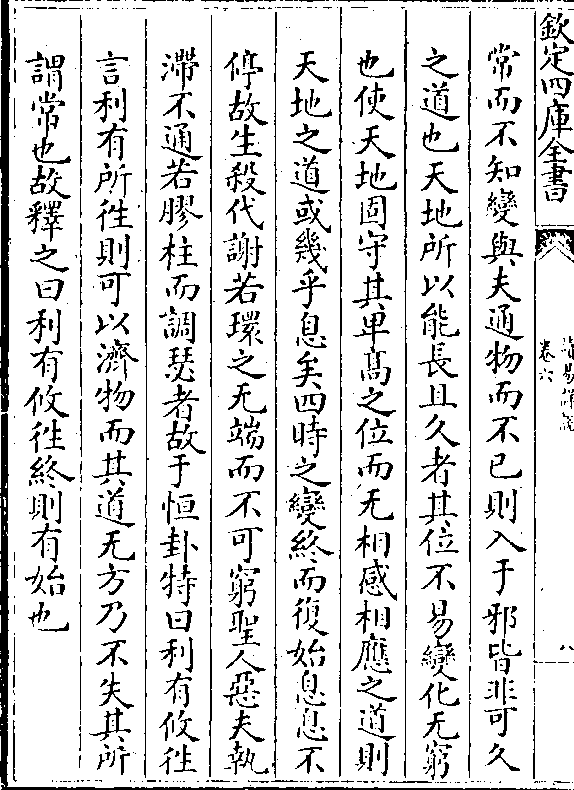 欽定四庫全書
卷六
常而不知變與夫通物而不已則入于邪皆非可久
之道也天地所以能長且久者其位不易變化无窮
也使天地固守其卑髙之位而无相感相應之道則
天地之道或幾乎息矣四時之變終而復始息息不
停故生殺代謝若環之无端而不可窮聖人惡夫執
滯不通若膠柱而調瑟者故于恒卦特曰利有攸往
言利有所徃則可以濟物而其道无方乃不失其所
謂常也故釋之曰利有攸徃終則有始也